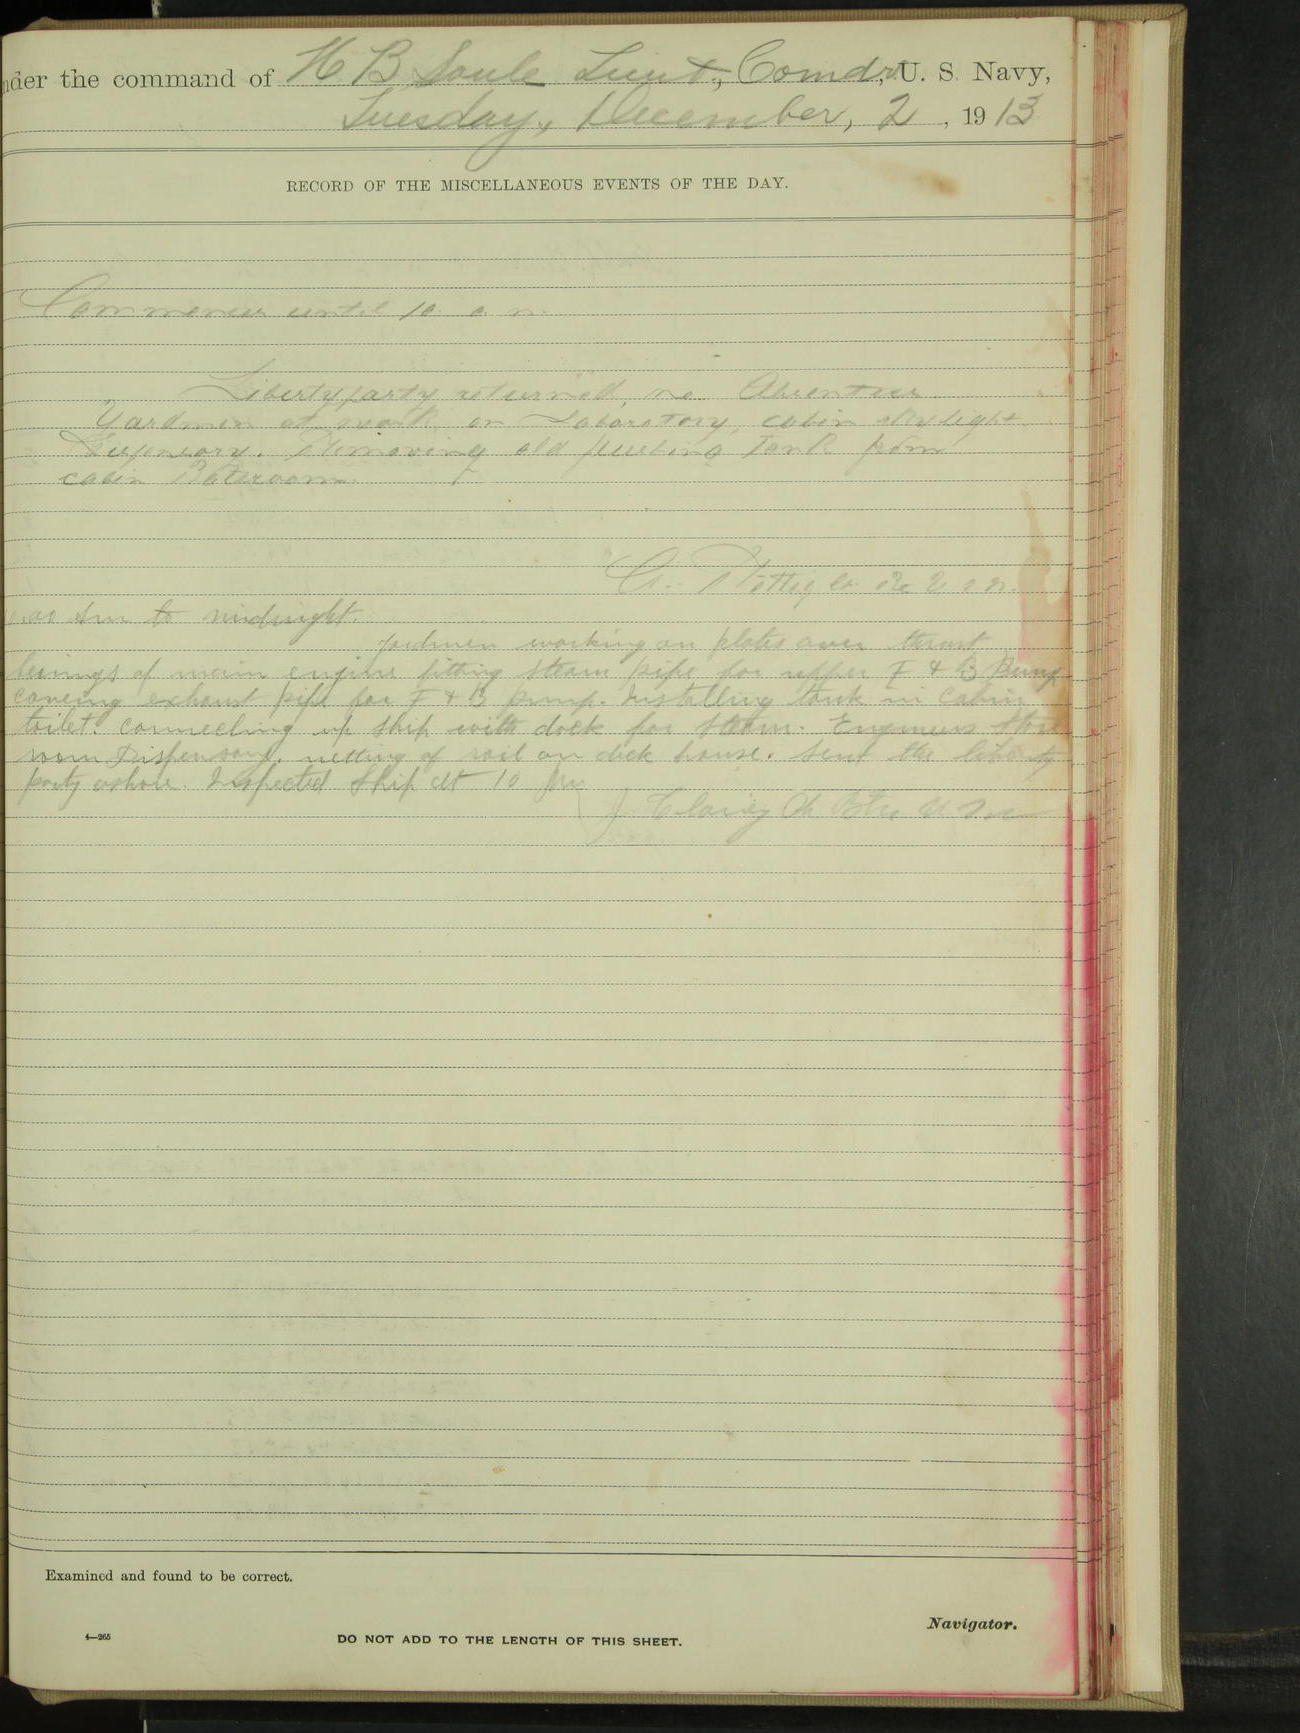 nder the command of H B Soule Lieut, Comdr, U. S. Navy,
Tuesday, December, 2, 1913
RECORD OF THE MISCELLANEOUS EVENTS OF THE DAY.
Commences until 10 a m.
Liberty party returned, no Absentees
Yardmen at work on Laboratory, cabin skylight
Dispensary. Removing old flushing Tank from
cabin Stateroom.
to midnight.
Yardmen working on plates over thrust
berings of main engine fitting steam pipe for upper F & B Pump
covering exhaust pipe for F & B pump. Installing tank in Cabin
toilet. connecting up ship with dock for steam. Engineers store
room Dispensary. netting of rail on deck house. Sent the liberty
party ashore. Inspected Ship at 10 pm
Examined and found to be correct.
Navigator.
4—265
DO NOT ADD TO THE LENGTH OF THIS SHEET.